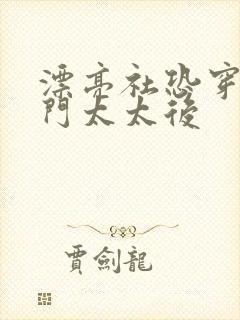 漂亮社恐穿
門太太後
賈劍龍